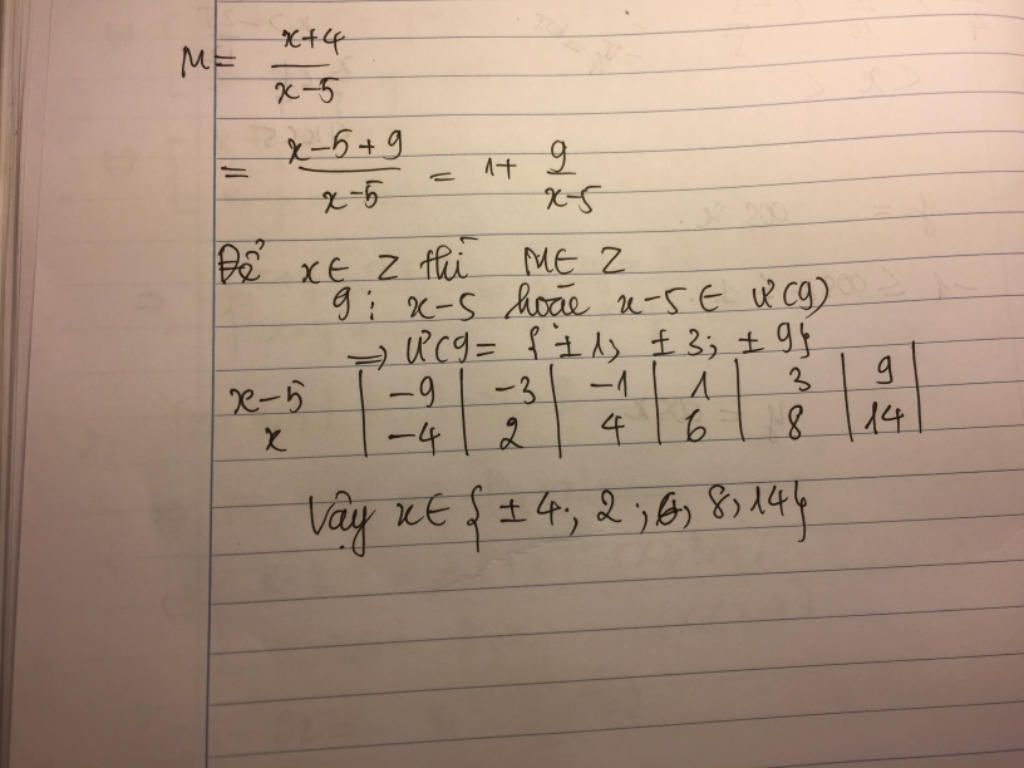 M = \frac{x+4}{x-5}
= \frac{x-5+9}{x-5} = 1 + \frac{9}{x-5}
Để x ∈ Z thì M ∈ Z
9 ⋮ x-5 hoặc x-5 ∈ Ư(9)
⇒ Ư(9 = {±1; ±3; ±9}
x-5 | -9 | -3 | -1 | 1 | 3 | 9 |
x | -4 | 2 | 4 | 6 | 8 | 14 |
Vậy x ∈ {±4; 2; 6; 8; 14}